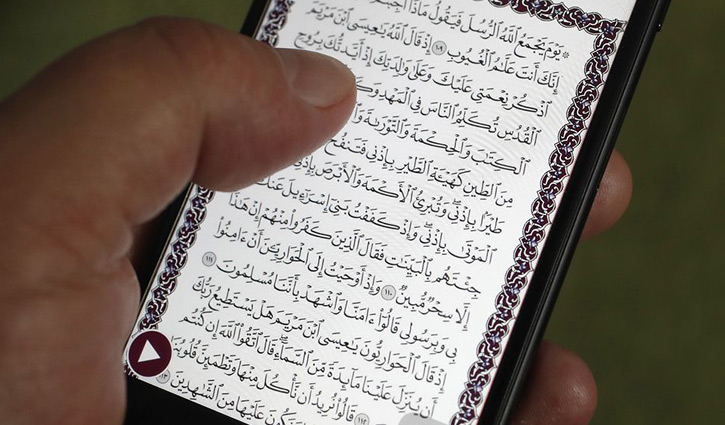 ۞ يَوْمَ يَجْمَعُ ٱللَّهُ ٱلرُّسُلَ فَيَقُولُ مَاذَآ أُجِبْتُمْ
إِنَّكَ أَنتَ عَلَّٰمُ ٱلْغُيُوبِ ١٠٩ إِذْ قَالَ ٱللَّهُ يَٰعِيسَى ٱبْنَ مَرْيَمَ
ٱذْكُرْ نِعْمَتِى عَلَيْكَ وَعَلَىٰ وَٰلِدَتِكَ إِذْ أَيَّدتُّكَ بِرُوحِ
ٱلْقُدُسِ تُكَلِّمُ ٱلنَّاسَ فِى ٱلْمَهْدِ
ٱلْكِتَٰبَ وَٱلْحِكْمَةَ وَٱلتَّوْرَىٰةَ
مِنَ ٱلطِّينِ كَهَيْـَٔةِ ٱلطَّيْرِ بِإِذْنِى فَتَنفُخُ
طَيْرًۢا بِإِذْنِى وَتُبْرِئُ ٱلْأَكْمَهَ وَٱلْأَبْرَصَ بِإِذْنِى
ٱلْمَوْتَىٰ بِإِذْنِى وَإِذْ كَفَفْتُ بَنِىٓ إِسْرَٰٓءِيلَ عَنكَ
جِئْتَهُم بِٱلْبَيِّنَٰتِ فَقَالَ ٱلَّذِينَ كَفَرُوا۟ مِنْهُمْ إِنْ هَٰذَآ
إِلَّا سِحْرٌ مُّبِينٌ ١١٠ وَإِذْ أَوْحَيْتُ إِلَى ٱلْحَوَارِيِّۦنَ أَنْ ءَامِنُوا۟
بِى وَبِرَسُولِى قَالُوٓا۟ ءَامَنَّا وَٱشْهَدْ بِأَنَّنَا مُسْلِمُونَ ١١١
إِذْ قَالَ ٱلْحَوَارِيُّونَ يَٰعِيسَى ٱبْنَ مَرْيَمَ هَلْ يَسْتَطِيعُ رَبُّكَ
أَن يُنَزِّلَ عَلَيْنَا مَآئِدَةً مِّنَ ٱلسَّمَآءِ قَالَ ٱتَّقُوا۟ ٱللَّهَ إِن كُنتُم
١١٢ قَالُوا۟ نُرِيدُ أَن نَّأْكُلَ مِنْهَا وَتَطْمَئِنَّ قُلُوبُنَا
وَنَكُونَ عَلَيْهَا مِنَ ٱلشَّٰهِدِينَ ١١٣